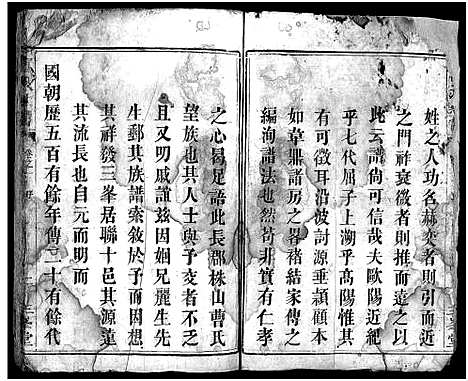 姓之人功名赫奕者則引而近
之門祚衰微者則推而遠之以
此云譜尙可信哉夫歐陽近紀
乎七代屈子上溯乎高陽惟其
有可徵耳沿波討源垂穎顧本
如韋鼎諸房之畧褚結家傳之
編洵譜法也然苟非實有仁孝
之心曷足語此長郡株山曹氏
望族也其人士與予交者不乏
且又叨戚誼茲因姻兄麗生先
生郵其族譜索敘於予而因想
其祥發三峯居聯十邑其源遠
其流長也自元而明而
國朝歷五百有餘年傳二十有餘代